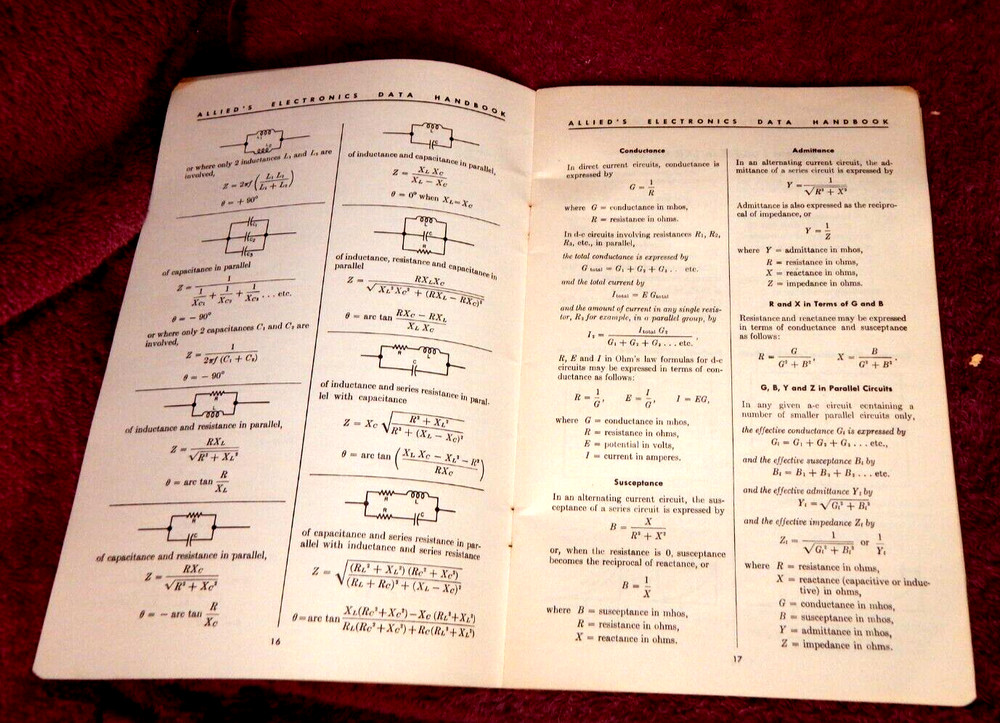 ALLIED'S ELECTRONICS DATA HANDBOOK
L₁
L₂
or where only 2 inductances L₁ and L₂ are
involved,
Z = 2πf (L₁ L₂ / (L₁ + L₂))
θ = + 90°
C₁
C₂
C₃
of capacitance in parallel
Z = 1 / (1/XC₁ + 1/XC₂ + 1/XC₃ ... etc.)
θ = − 90°
or where only 2 capacitances C₁ and C₂ are
involved,
Z = 1 / (2πf (C₁ + C₂))
θ = − 90°
R
L
of inductance and resistance in parallel,
Z = RXL / √(R² + XL²)
θ = arc tan R / XL
R
C
of capacitance and resistance in parallel,
Z = RXC / √(R² + XC²)
θ = − arc tan R / XC
L
C
of inductance and capacitance in parallel,
Z = XL XC / (XL − XC)
θ = 0° when XL = XC
L
C
R
of inductance, resistance and capacitance in
parallel
Z = RXLXC / √(XL²XC² + (RXL − RXC)²)
θ = arc tan (RXC − RXL) / (XL XC)
R
L
C
of inductance and series resistance in paral-
lel with capacitance
Z = XC √((R² + XL²) / (R² + (XL − XC)²))
θ = arc tan ((XL XC − XL² − R²) / RXC)
R
L
R
C
of capacitance and series resistance in par-
allel with inductance and series resistance
Z = √((RL² + XL²) (RC² + XC²) / ((RL + RC)² + (XL − XC)²))
θ = arc tan (XL(RC²+XC²) − XC(RL²+XL²)) / (RL(RC²+XC²) + RC(RL²+XL²))
16
ALLIED'S ELECTRONICS DATA HANDBOOK
Conductance
In direct current circuits, conductance is
expressed by
G = 1 / R
where G = conductance in mhos,
R = resistance in ohms.
In d-c circuits involving resistances R₁, R₂,
R₃, etc., in parallel,
the total conductance is expressed by
G total = G₁ + G₂ + G₃ . . . etc.
and the total current by
I total = E G total
and the amount of current in any single resis-
tor, R₂ for example, in a parallel group, by
I₂ = I total G₂ / (G₁ + G₂ + G₃ . . . etc.)
R, E and I in Ohm's law formulas for d-c
circuits may be expressed in terms of con-
ductance as follows:
R = 1 / G, E = I / G, I = EG,
where G = conductance in mhos,
R = resistance in ohms,
E = potential in volts,
I = current in amperes.
Susceptance
In an alternating current circuit, the sus-
ceptance of a series circuit is expressed by
B = X / (R² + X²)
or, when the resistance is 0, susceptance
becomes the reciprocal of reactance, or
B = 1 / X
where B = susceptance in mhos,
R = resistance in ohms,
X = reactance in ohms.
Admittance
In an alternating current circuit, the ad-
mittance of a series circuit is expressed by
Y = 1 / √(R² + X²)
Admittance is also expressed as the recipro-
cal of impedance, or
Y = 1 / Z
where Y = admittance in mhos,
R = resistance in ohms,
X = reactance in ohms,
Z = impedance in ohms.
R and X in Terms of G and B
Resistance and reactance may be expressed
in terms of conductance and susceptance
as follows:
R = G / (G² + B²), X = B / (G² + B²)
G, B, Y and Z in Parallel Circuits
In any given a-c circuit containing a
number of smaller parallel circuits only,
the effective conductance Gt is expressed by
Gt = G₁ + G₂ + G₃ . . . etc.,
and the effective susceptance Bt by
Bt = B₁ + B₂ + B₃ . . . etc.
and the effective admittance Yt by
Yt = √(Gt² + Bt²)
and the effective impedance Zt by
Zt = 1 / √(Gt² + Bt²) or 1 / Yt
where R = resistance in ohms,
X = reactance (capacitive or induc-
tive) in ohms,
G = conductance in mhos,
B = susceptance in mhos,
Y = admittance in mhos,
Z = impedance in ohms.
17